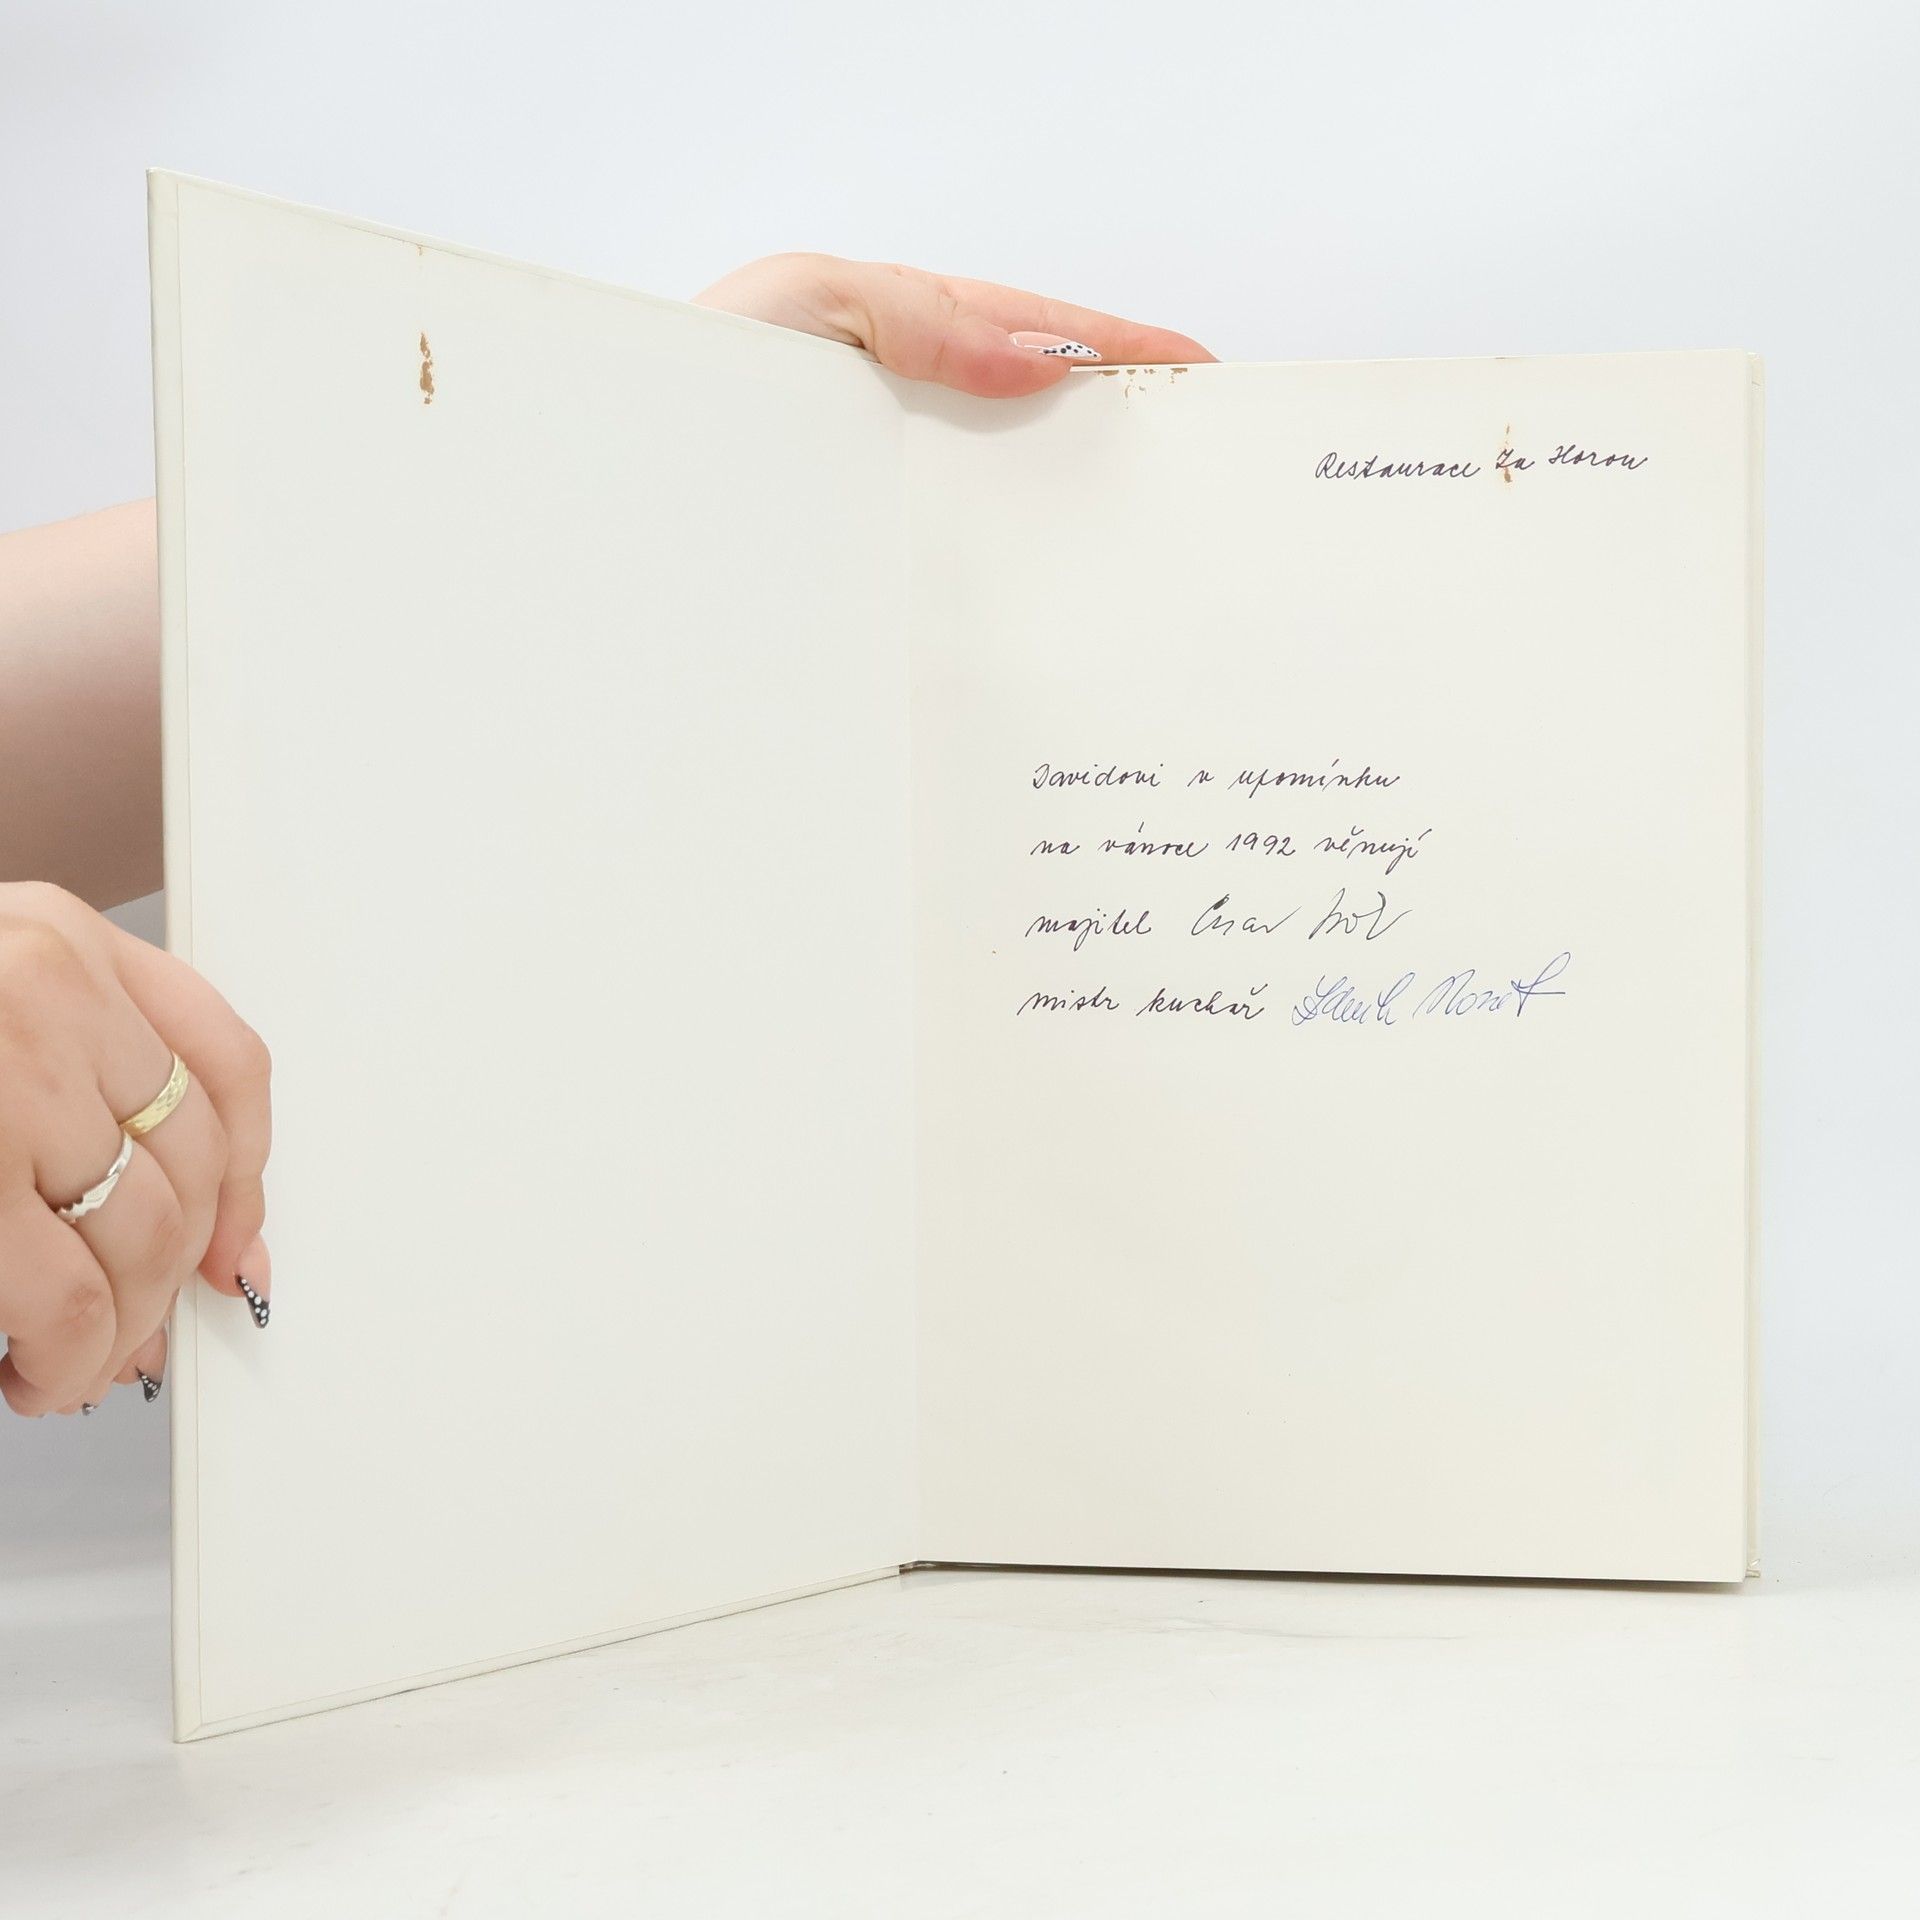 Restaurace Za Horou
Davidovi v upomínku
na vánoce 1992 věnují
majitel
mistr kuchař